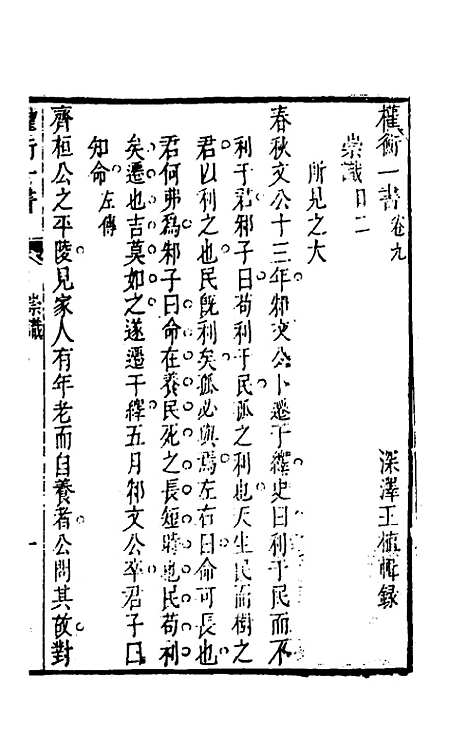 權衡一書 卷九
深澤王植輯錄
崇識目二
所見之大
春秋文公十三年邾文公卜遷于繹史曰利于民而不
利于君邾子曰苟利于民孤之利也天生民而樹之
君以利之也民旣利矣孤必與焉左右曰命可長也
君何弗爲邾子曰命在養民死之長短時也民苟利
矣遷也吉莫如之遂遷于繹五月邾文公卒君子曰
知命 左傳
齊桓公之平陵見家人有年老而自養者公問其故對
權衡一書 崇識 一